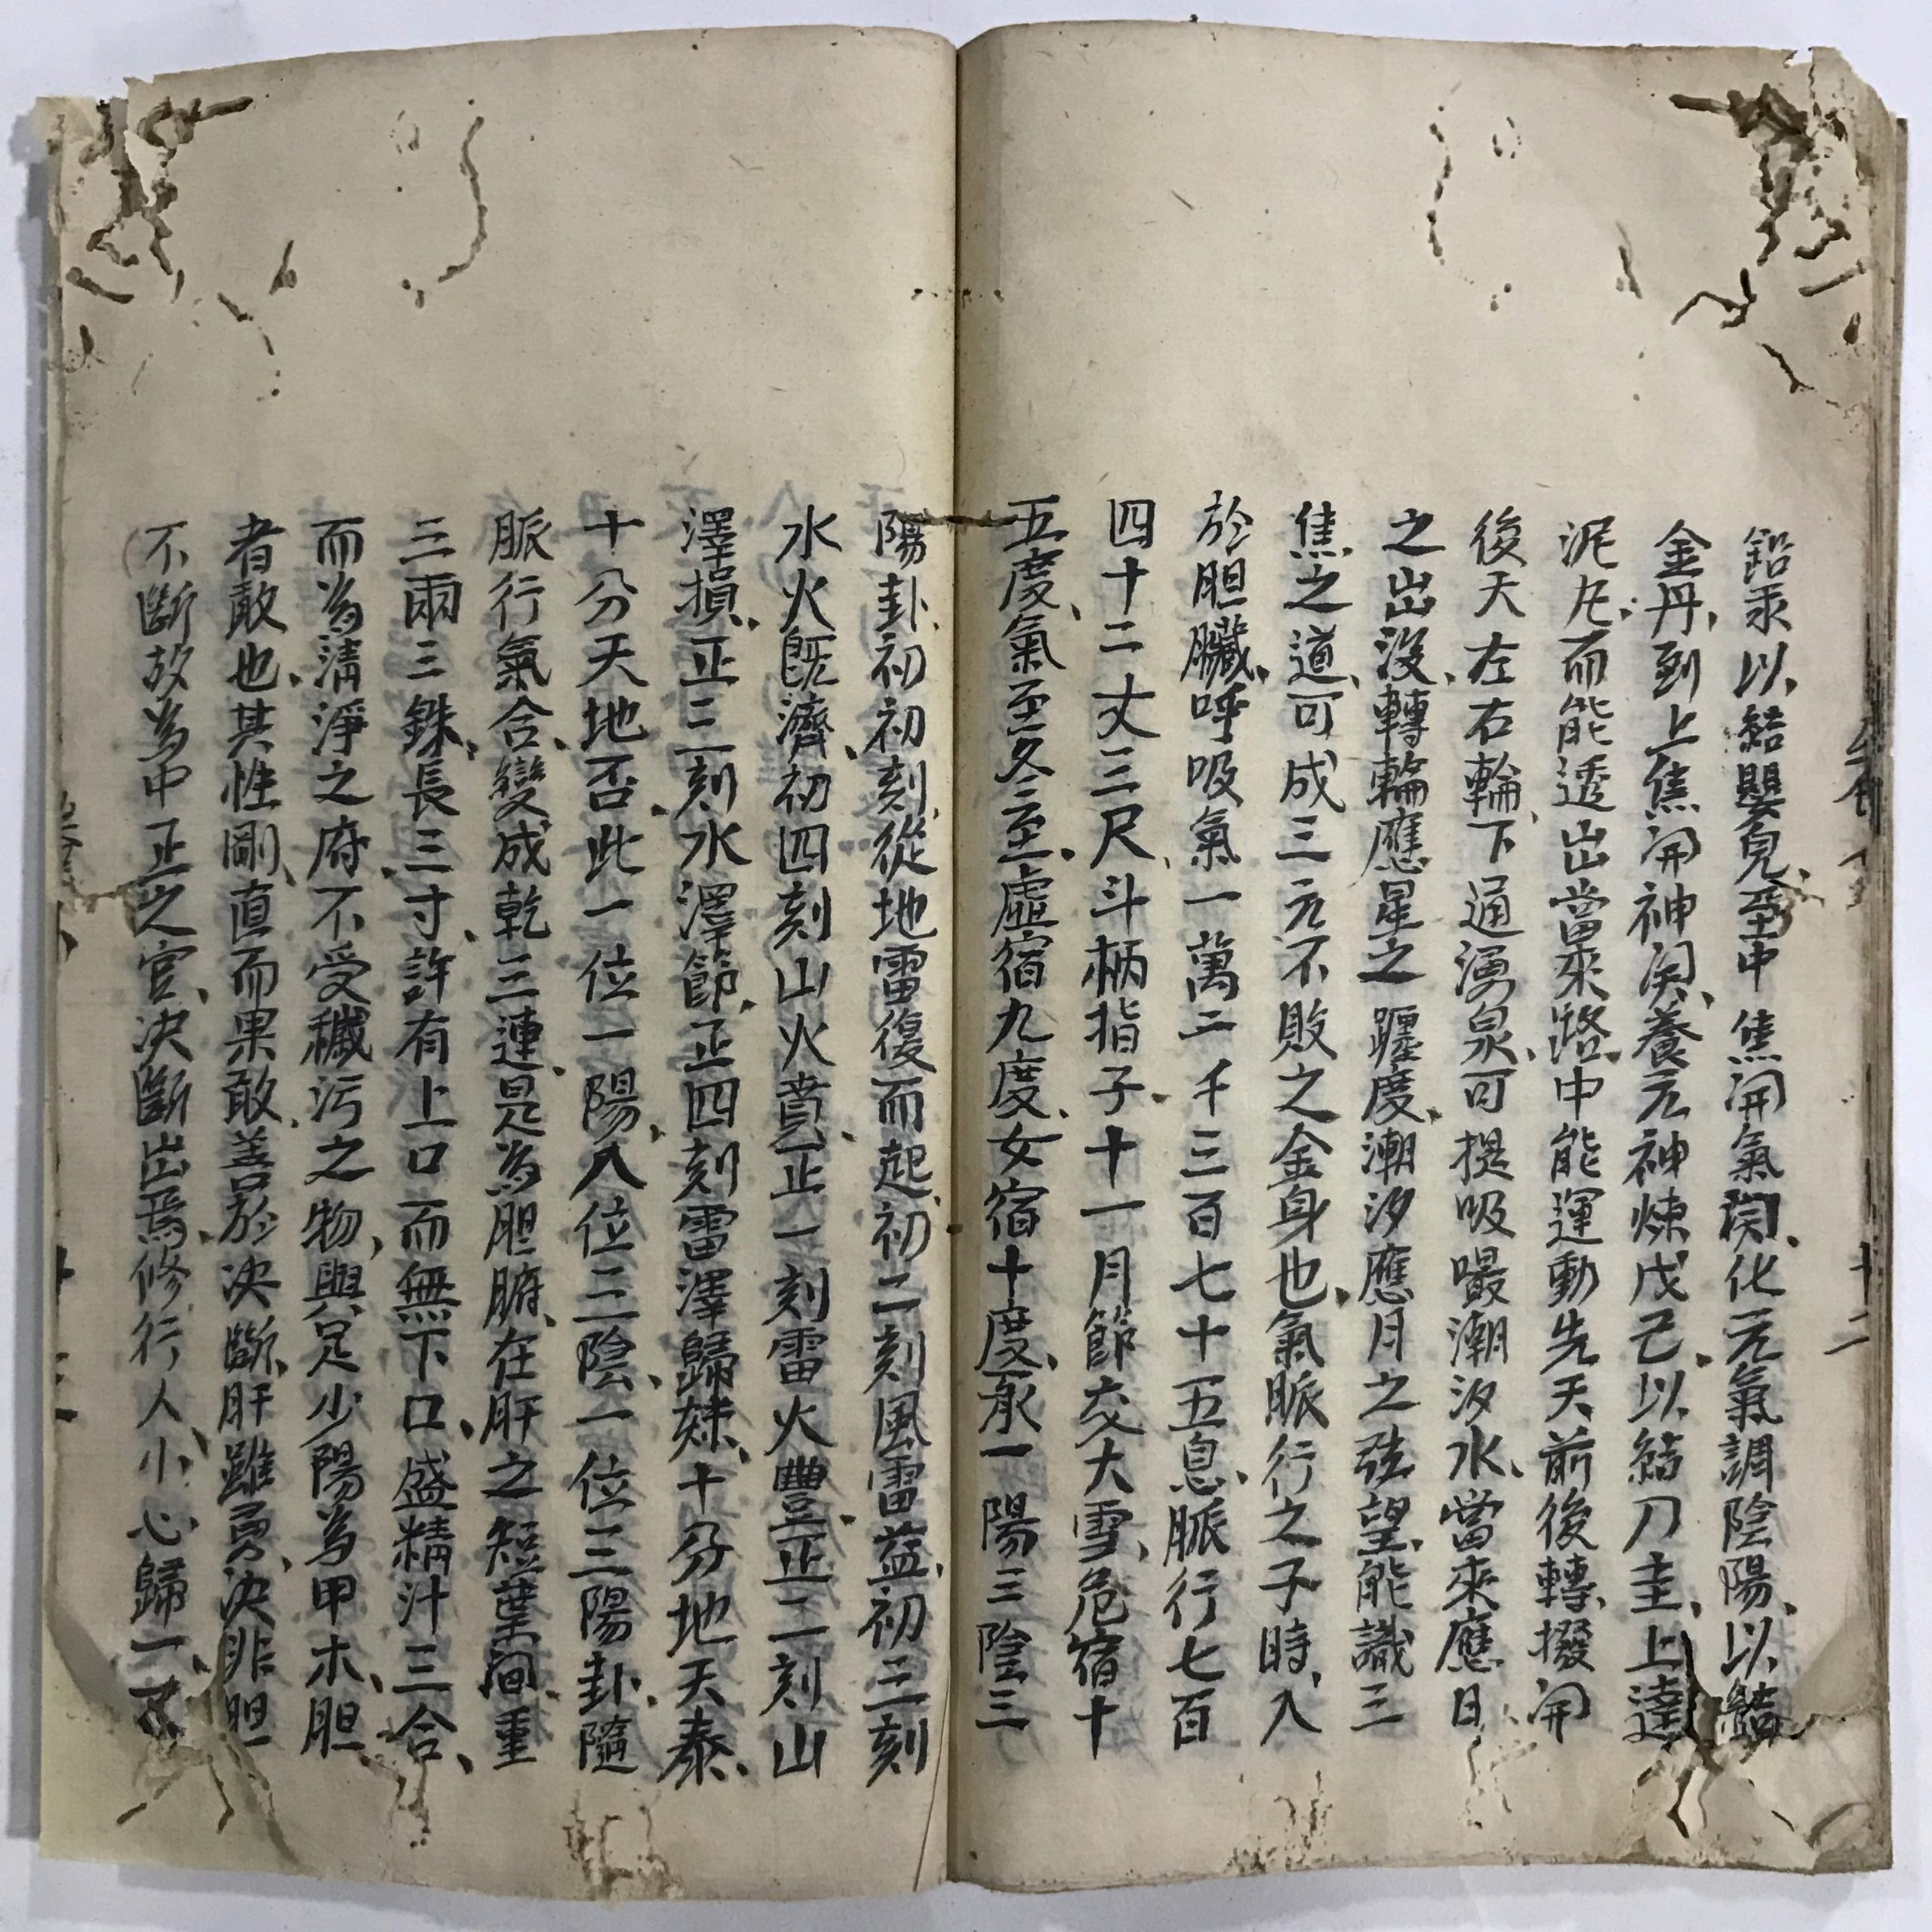 鉛汞以結嬰兒至中焦開氣関化元氣調陰陽以結
金丹到上焦開神関養元神煉戊己以結刀圭上達
泥丸而能透出當來路中能運動先天前後轉撥開
後天左右輪下通湧泉可提吸嘬潮汐水當來應日
之出沒轉輪應星之躔度潮汐應月之弦望能識三
焦之道可成三元不敗之金身也氣脈行之子時入
於胆臟呼吸氣一萬二千三百七十五息脈行七百
四十二丈三尺斗柄指子十一月節交大雪危宿十
五度氣至冬至虛宿九度女宿十度承一陽三陰三
陽卦初初刻從地雷復而起初二刻風雷益初三刻
水火旣濟初四刻山火賁正一刻雷火豐正二刻山
澤損正三刻水澤節正四刻雷澤歸妹十分地天泰
十分天地否此一位一陽入位三陰一位三陽卦隨
脈行氣合變成乾三連是為胆腑在肝之短葉間重
三兩三銖長三寸許有上口而無下口盛精汁三合
而為清淨之府不受穢污之物與足少陽為甲木胆
者敢也其性剛直而果敢善於決斷肝雖勇決非胆
不斷故為中正之官決斷出焉修行人小心歸一
十二